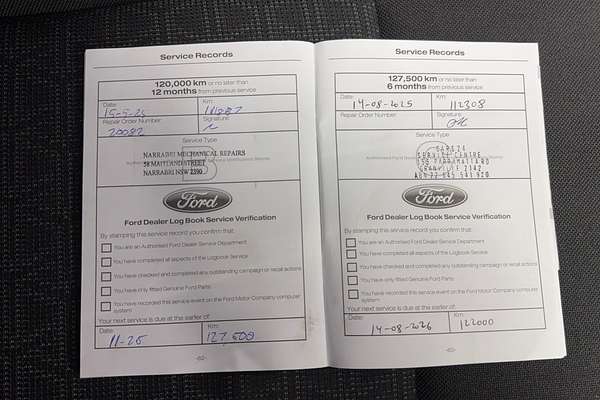 Service Records
120,000 km or no later than
12 months from previous service
Date:
15-5-25
Km:
Repair Order Number:
20082
Signature:
Service Type
NARRABRI MECHANICAL REPAIRS
58 MAITLAND STREET
NARRABRI NSW 2390
Ford
Ford Dealer Log Book Service Verification
By stamping this service record you confirm that:
You are an Authorised Ford Dealer Service Department
You have completed all aspects of the Logbook Service
You have checked and completed any outstanding campaign or recall actions
You have only fitted Genuine Ford Parts
You have recorded this service event on the Ford Motor Company computer
system
Your next service is due at the earlier of:
Date:
11-25
Km:
127 500
Service Records
127,500 km or no later than
6 months from previous service
Date:
14-08-2025
Km:
112308
Repair Order Number:
Signature:
Service Type
SERVICE CENTRE
GRANVILLE 2142
Ford
Ford Dealer Log Book Service Verification
By stamping this service record you confirm that:
You are an Authorised Ford Dealer Service Department
You have completed all aspects of the Logbook Service
You have checked and completed any outstanding campaign or recall actions
You have only fitted Genuine Ford Parts
You have recorded this service event on the Ford Motor Company computer
system
Your next service is due at the earlier of:
Date:
14-08-2026
Km:
122000